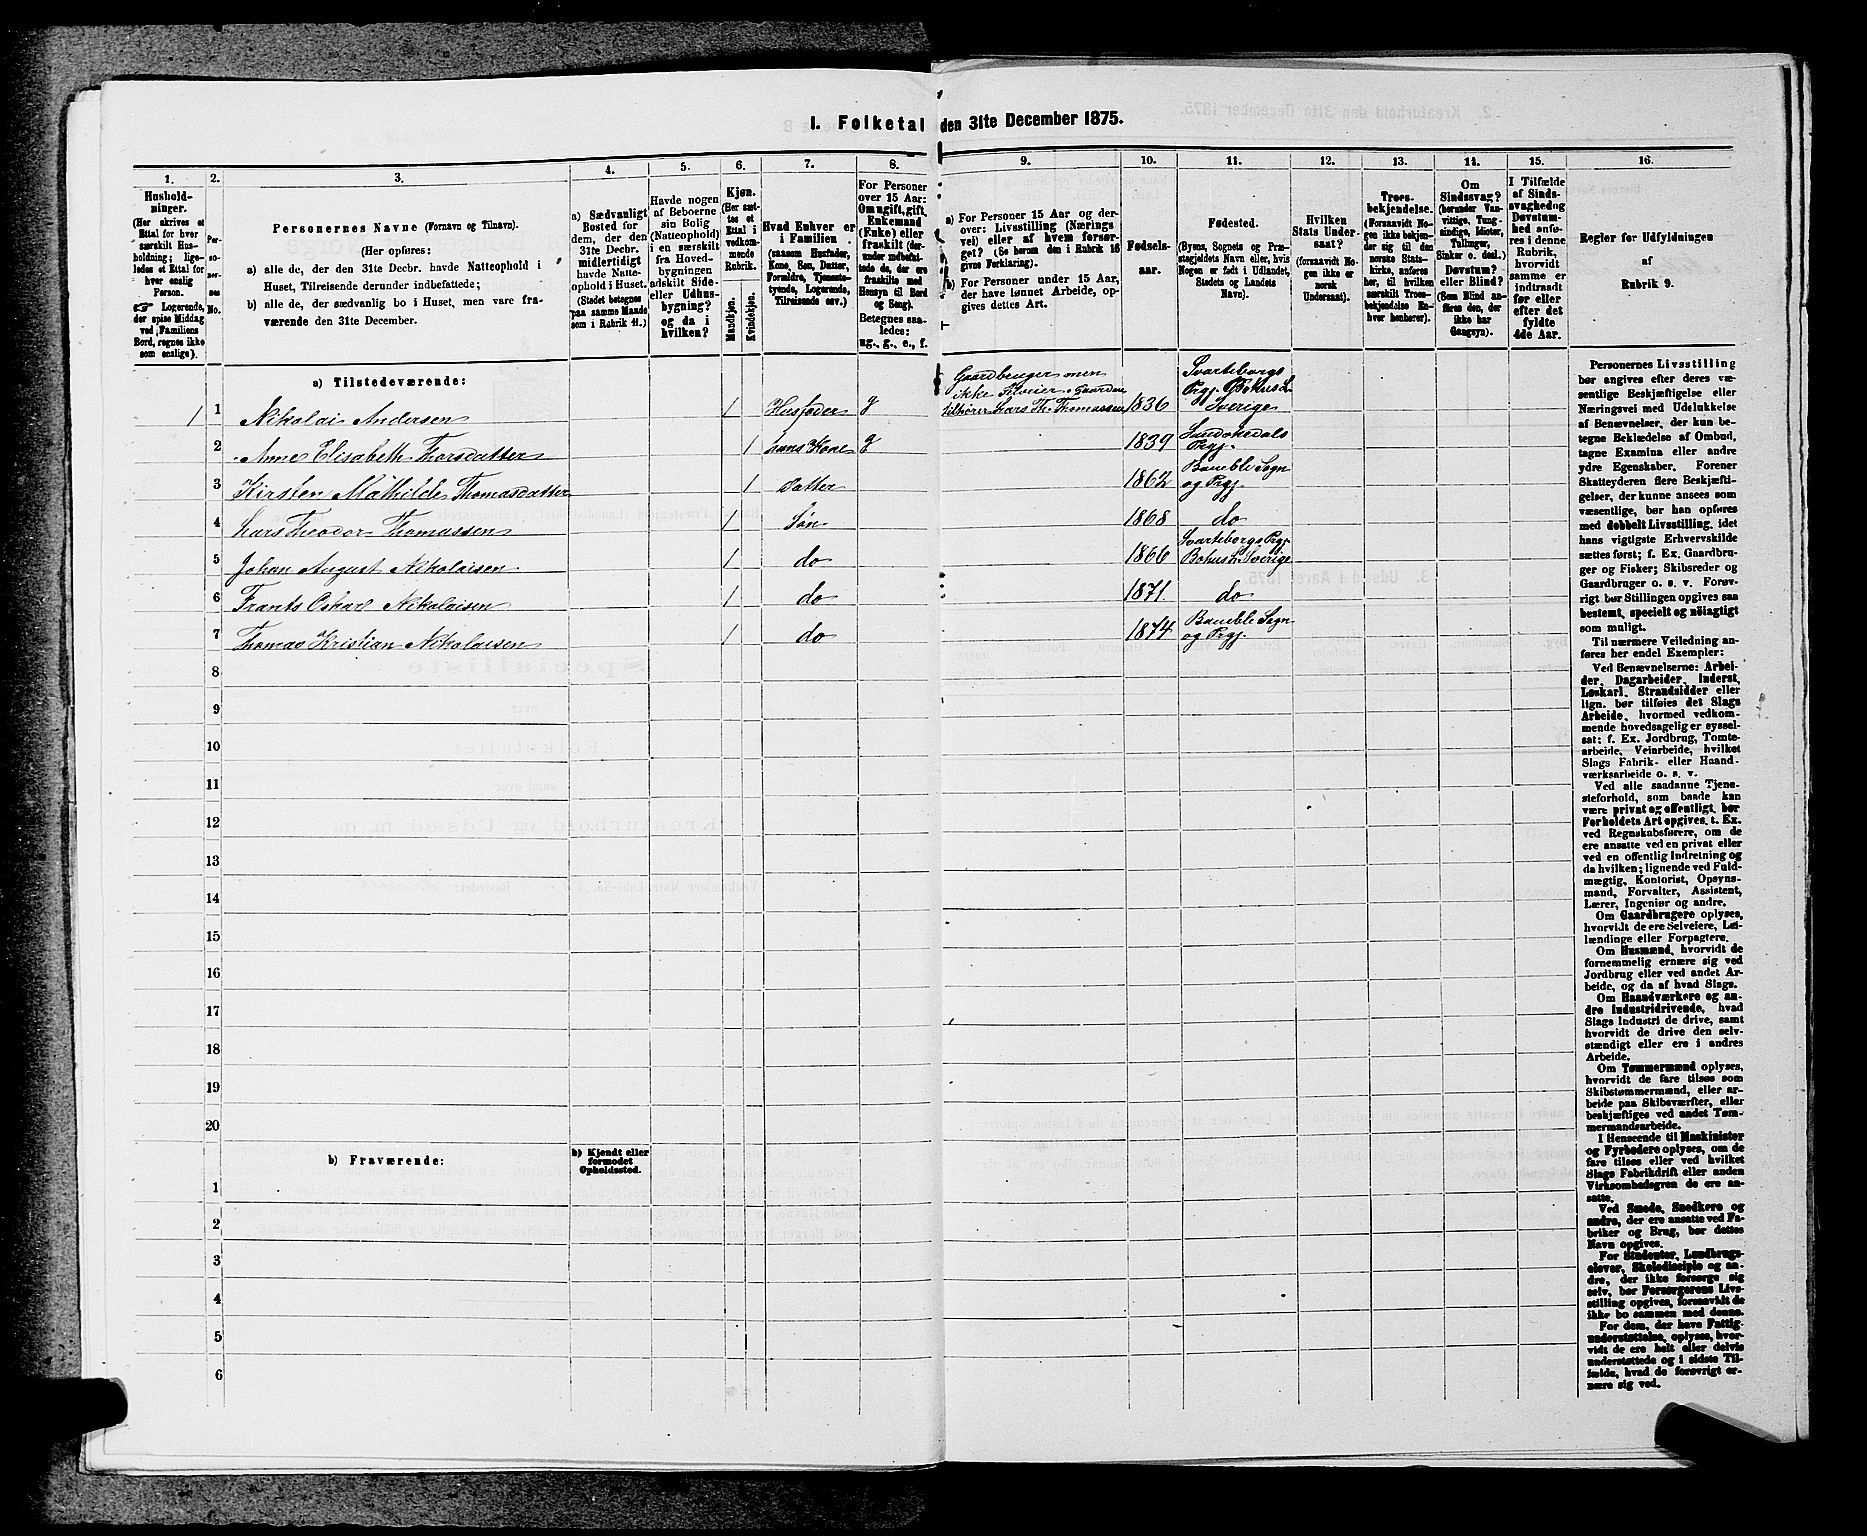 I. Folketal den 31te December 1875.
1. 2. 3. 4. 5. 6. 7. 8. 9. 10. 11. 12. 13. 14. 15. 16.
Hushold-
ninger.
(Her skrives et
Ettal for hver
særskilt Hus-
holdning; lige-
ledes et Ettal for
hver enslig
Person.
☞ Logerende,
der spise Middag
ved Familiens
Bord, regnes ikke
som enslige).
Per-
so-
ner-
nes
No.
Personernes Navne (Fornavn og Tilnavn).
(Her opføres:
a) alle de, der den 31te Decbr. havde Natteophold i
Huset, Tilreisende derunder indbefattede;
b) alle de, der sædvanlig bo i Huset, men vare fra-
værende den 31te December.
a) Sædvanligt
Bosted for
dem, der den
31te Decbr.
midlertidigt
havde Natte-
ophold i Huset.
(Stedet betegnes
paa samme Maade
som i Rubrik 11.)
Havde nogen
af Beboerne
sin Bolig
(Natteophold)
i en særskilt
fra Hoved-
bygningen
adskilt Side-
eller Udhus-
bygning?
og da i
hvilken?
Kjøn.
(Her sæt-
tes et
Ettal i
vedkom-
mende
Rubrik.
Mandkjøn.
Kvindekjøn.
Hvad Enhver er
i Familien
(saasom Husfader,
Kone, Søn, Datter,
Forældre, Tjeneste-
tyende, Logerende,
Tilreisende osv.)
For Personer
over 15 Aar:
Om ugift, gift,
Enkemand
(Enke) eller
fraskilt (der-
under indbefat-
tede de, der ere
fraskilte med
Hensyn til Bord
og Seng).
Betegnes saa-
ledes:
ug., g., e., f.
a) For Personer 15 Aar og der-
over: Livsstilling (Nærings
vei) eller af hvem forsør-
get? (Se herom den i Rubrik 16
givne Forklaring).
b) For Personer under 15 Aar,
der have lønnet Arbeide, op-
gives dettes Art.
Fødsels-
aar.
Fødested.
(Byens, Sognets og Præ-
stegjeldets Navn eller, hvis
Nogen er født i Udlandet,
Stedets og Landets
Navn).
Hvilken
Stats Under-
saat?
(forsaavidt No-
gen ikke er
norsk
Undersaat).
Troes-
bekjendelse.
(Forsaavidt No-
gen ikke bekjen-
der sig til den
norske Stats-
kirke, anføres
her, til hvilken
særskilt Troes-
bekjendelse En-
hver henhører).
Om
Sindssvag?
(herunder Van-
vittige, Tung-
sindige, Idioter,
Tullinger,
Sinker o. desl.)
Døvstum?
eller Blind?
(Som Blind an-
føres den, der
ikke har
Gangsyn).
I Tilfælde
af Sinds-
svaghed og
Døvstum-
hed anfø-
res i denne
Rubrik,
hvorvidt
samme er
indtraadt
før eller
efter det
fyldte
4de Aar.
Regler for Udfyldningen
af
Rubrik 9.
a) Tilstedeværende:
1 1 Nikolai Andersen 1 Husfader g Gaardbruger men ikke Selveier, Gaarden tilhører Lars Th. Thomassen 1836 Svarteborgs Prgj. Bohus L. Sverige
2 Anne Elisabeth Thorsdatter 1 hans Kone g 1839 Prgj.
3 Kirsten Mathilde Thomasdatter 1 Datter 1862 Bamble Sogn og Prgj.
4 Lars Theodor Thomassen 1 Søn 1868 do
5 Johan August Nikolaisen 1 do 1866 Svarteborgs Prgj. Bohus L. Sverige
6 Frants Oskar Nikolaisen 1 do 1871. do
7 Thomas Kristian Nikolaisen 1 do 1874 Bamble Sogn og Prgj.
8
9
10
11
12
13
14
15
16
17
18
19
20
b) Fraværende:
b) Kjendt eller
formodet
Opholdssted.
1
2
3
4
5
6
Personernes Livsstilling
bør angives efter deres væ-
sentlige Beskjæftigelse eller
Næringsvei med Udelukkelse
af Benævnelser, der kun be-
tegne Beklædelse af Ombud,
tagne Examina eller andre
ydre Egenskaber. Forener
Skatteyderen flere Beskjæfti-
gelser, der kunne ansees som
væsentlige, bør han opføres
med dobbelt Livsstilling, idet
hans vigtigste Erhvervskilde
sættes først; f. Ex. Gaardbru-
ger og Fisker; Skibsreder og
Gaardbruger o. s. v. Forøv-
rigt bør Stillingen opgives saa
bestemt, specielt og nøiagtigt
som muligt.
Til nærmere Veiledning an-
føres her endel Exempler:
Ved Benævnelserne: Arbei-
der, Dagarbeider, Inderst,
Løskarl, Strandsidder eller
lign. bør tilføies det Slags
Arbeide, hvormed vedkom-
mende hovedsagelig er syssel-
sat; f. Ex. Jordbrug, Tomte-
arbeide, Veiarbeide, hvilket
Slags Fabrik- eller Haand-
værksarbeide o. s. v.
Ved alle saadanne Tjene-
steforhold, som baade kan
være privat og offentligt, bør
Forholdets Art opgives, t. Ex.
ved Regnskabsførere, om de
ere ansatte ved en privat eller
ved en offentlig Indretning og
da hvilken; lignende ved Fuld-
mægtig, Kontorist, Opsyns-
mand, Forvalter, Assistent,
Lærer, Ingeniør og andre.
Om Gaardbrugere oplyses,
hvorvidt de ere Selveiere, Lei-
lændinge eller Forpagtere.
Om Husmænd, hvorvidt de
fornemmelig ernære sig ved
Jordbrug eller ved andet Ar-
beide, og da af hvad Slags.
Om Haandværkere og an-
dre Industridrivende, hvad
Slags Industri de drive, samt
hvorvidt de drive den selv-
stændigt eller ere i andres
Arbeide.
Om Tømmermænd oplyses,
hvorvidt de fare tilsøs som
Skibstømmermænd, eller ar-
beide paa Skibsværfter, eller
beskjæftiges ved andet Tøm-
mermandsarbeide.
I Henseende til Maskinister
og Fyrbødere oplyses, om de
fare tilsøs eller ved hvilket
Slags Fabrikdrift eller anden
Virksomhedsgren de ere an-
satte.
Ved Smede, Snedkere og
andre, der ere ansatte ved Fa-
briker og Brug, bør dettes
Navn opgives.
For Studenter, Landbrugs-
elever, Skoledisciple og an-
dre, der ikke forsørge sig
selv, bør Forsørgerens Livs-
stilling opgives, forsaavidt de
ikke bo sammen med denne.
For dem, der have Fattig-
understøttelse, oplyses, hvor-
vidt de ere helt eller delvis
understøttede og i sidste Til-
fælde, hvad de forøvrigt er-
nære sig ved.